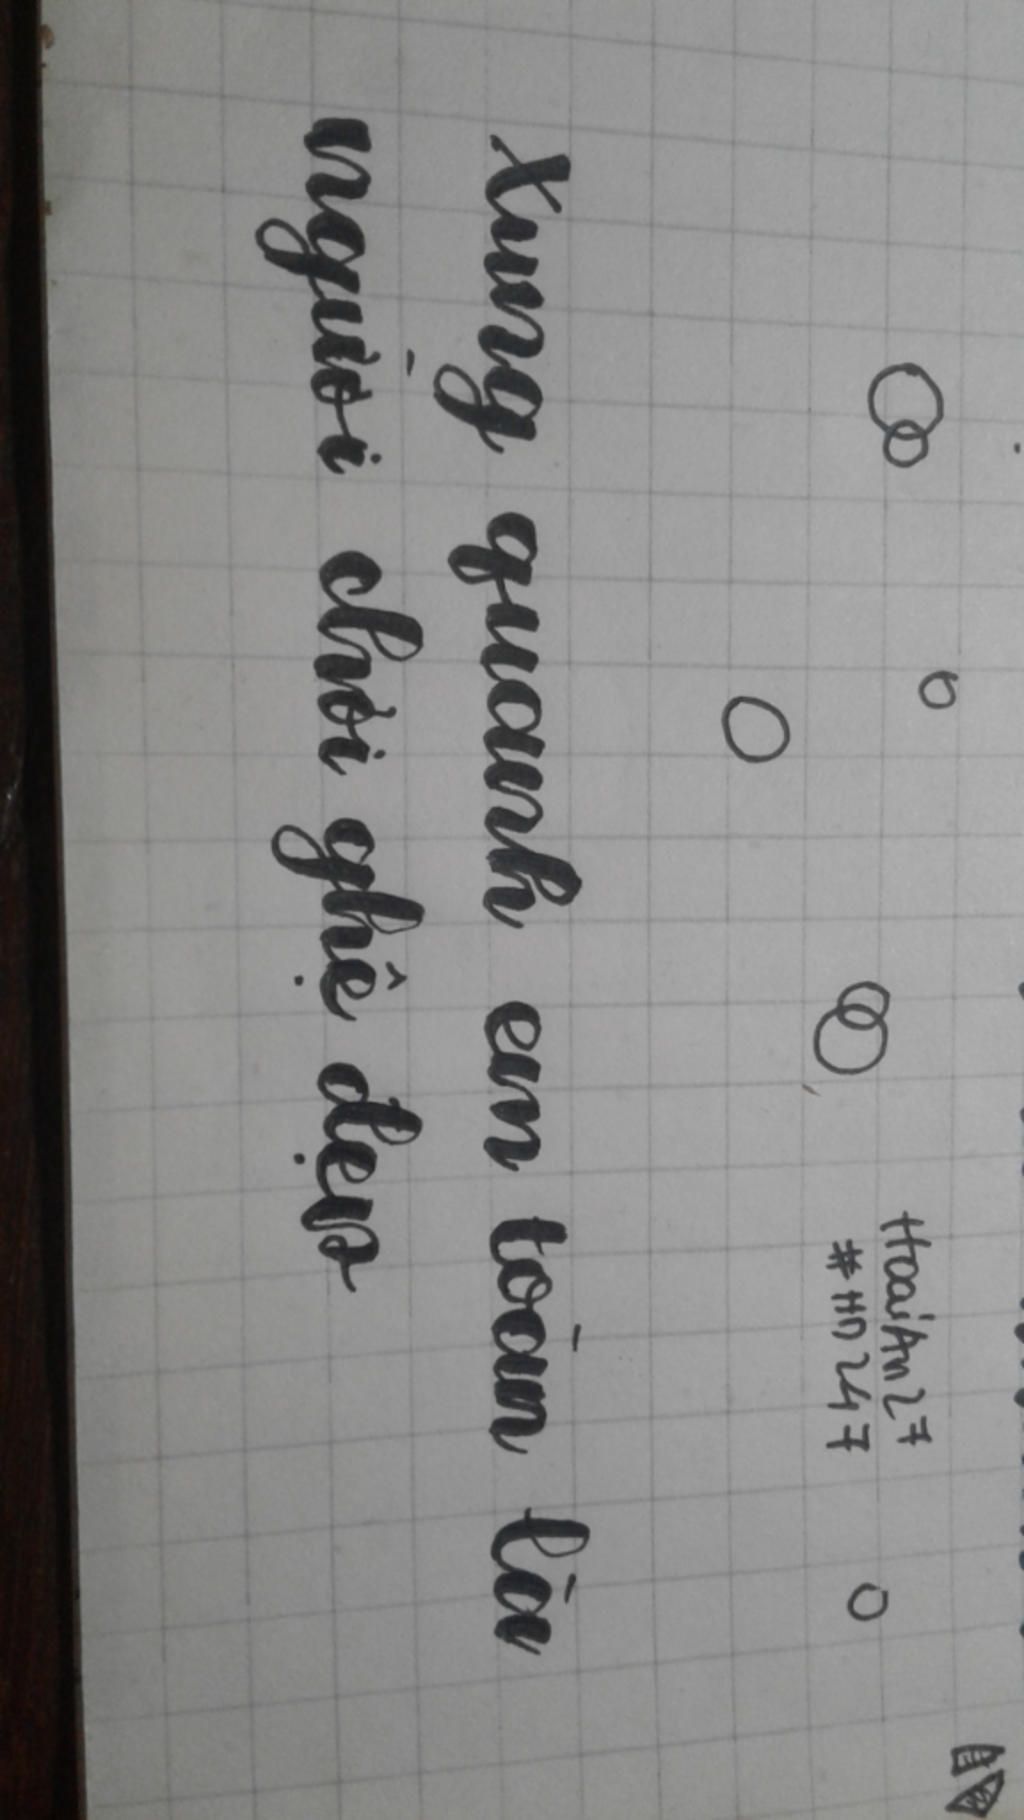 HoaiAn27
#HD247
Xung quanh em toàn là
người chơi ghệ đẹp